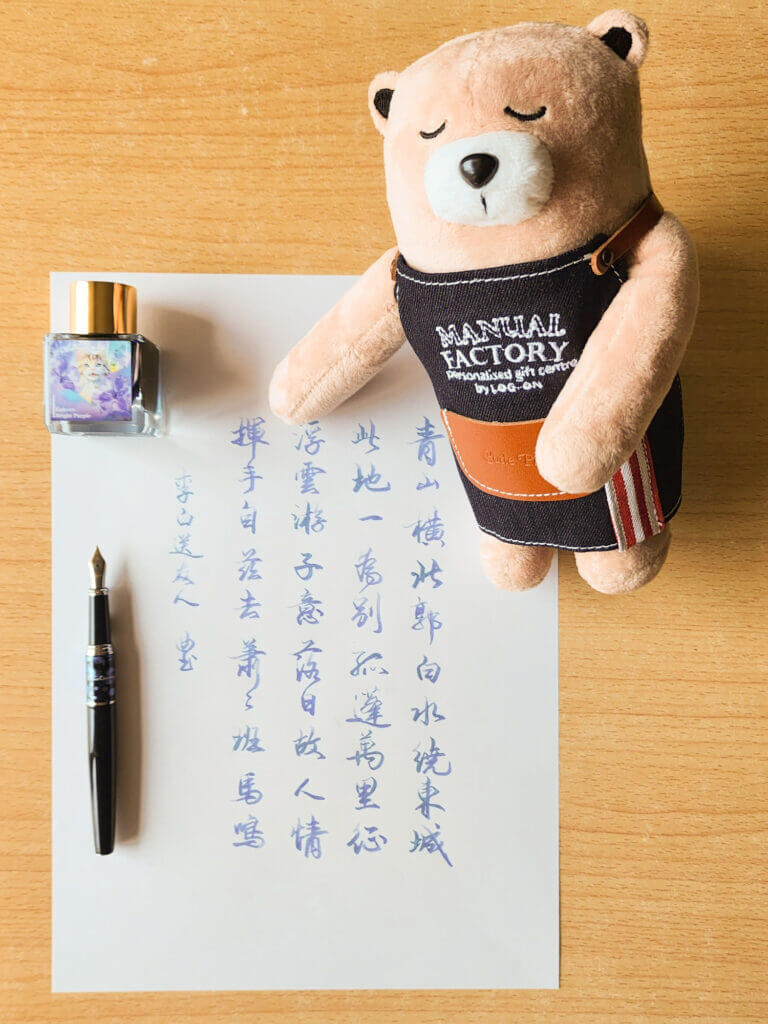 MANUAL
FACTORY
personalised gift centre
by LOG-ON
青山橫北郭白水繞東城
此地一為別孤蓬萬里征
浮雲游子意落日故人情
揮手自茲去蕭〻班馬鳴
李白送友人